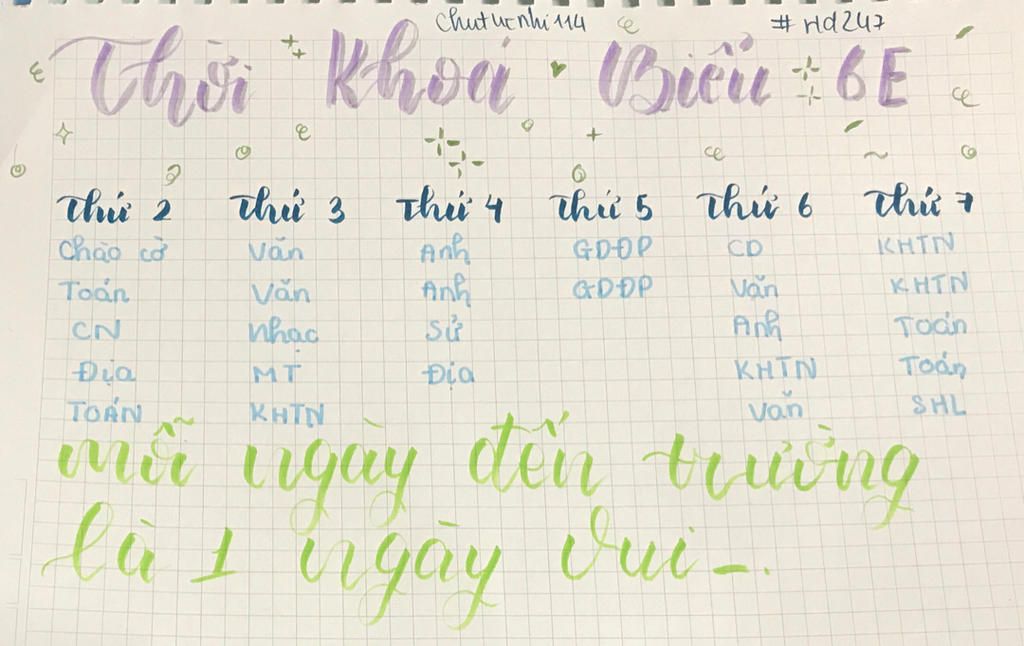 Chutucnhi114 #rld247
Thời Khoá Biểu 6E
Thứ 2 Thứ 3 Thứ 4 Thứ 5 Thứ 6 Thứ 7
Chào cờ Văn Anh GDĐP CD KHTN
Toán Văn Anh GDĐP Văn KHTN
CN Nhạc Sử Anh Toán
Địa MT Địa KHTN Toán
TOÁN KHTN Văn SHL
mỗi ngày đến trường
là 1 ngày vui_.